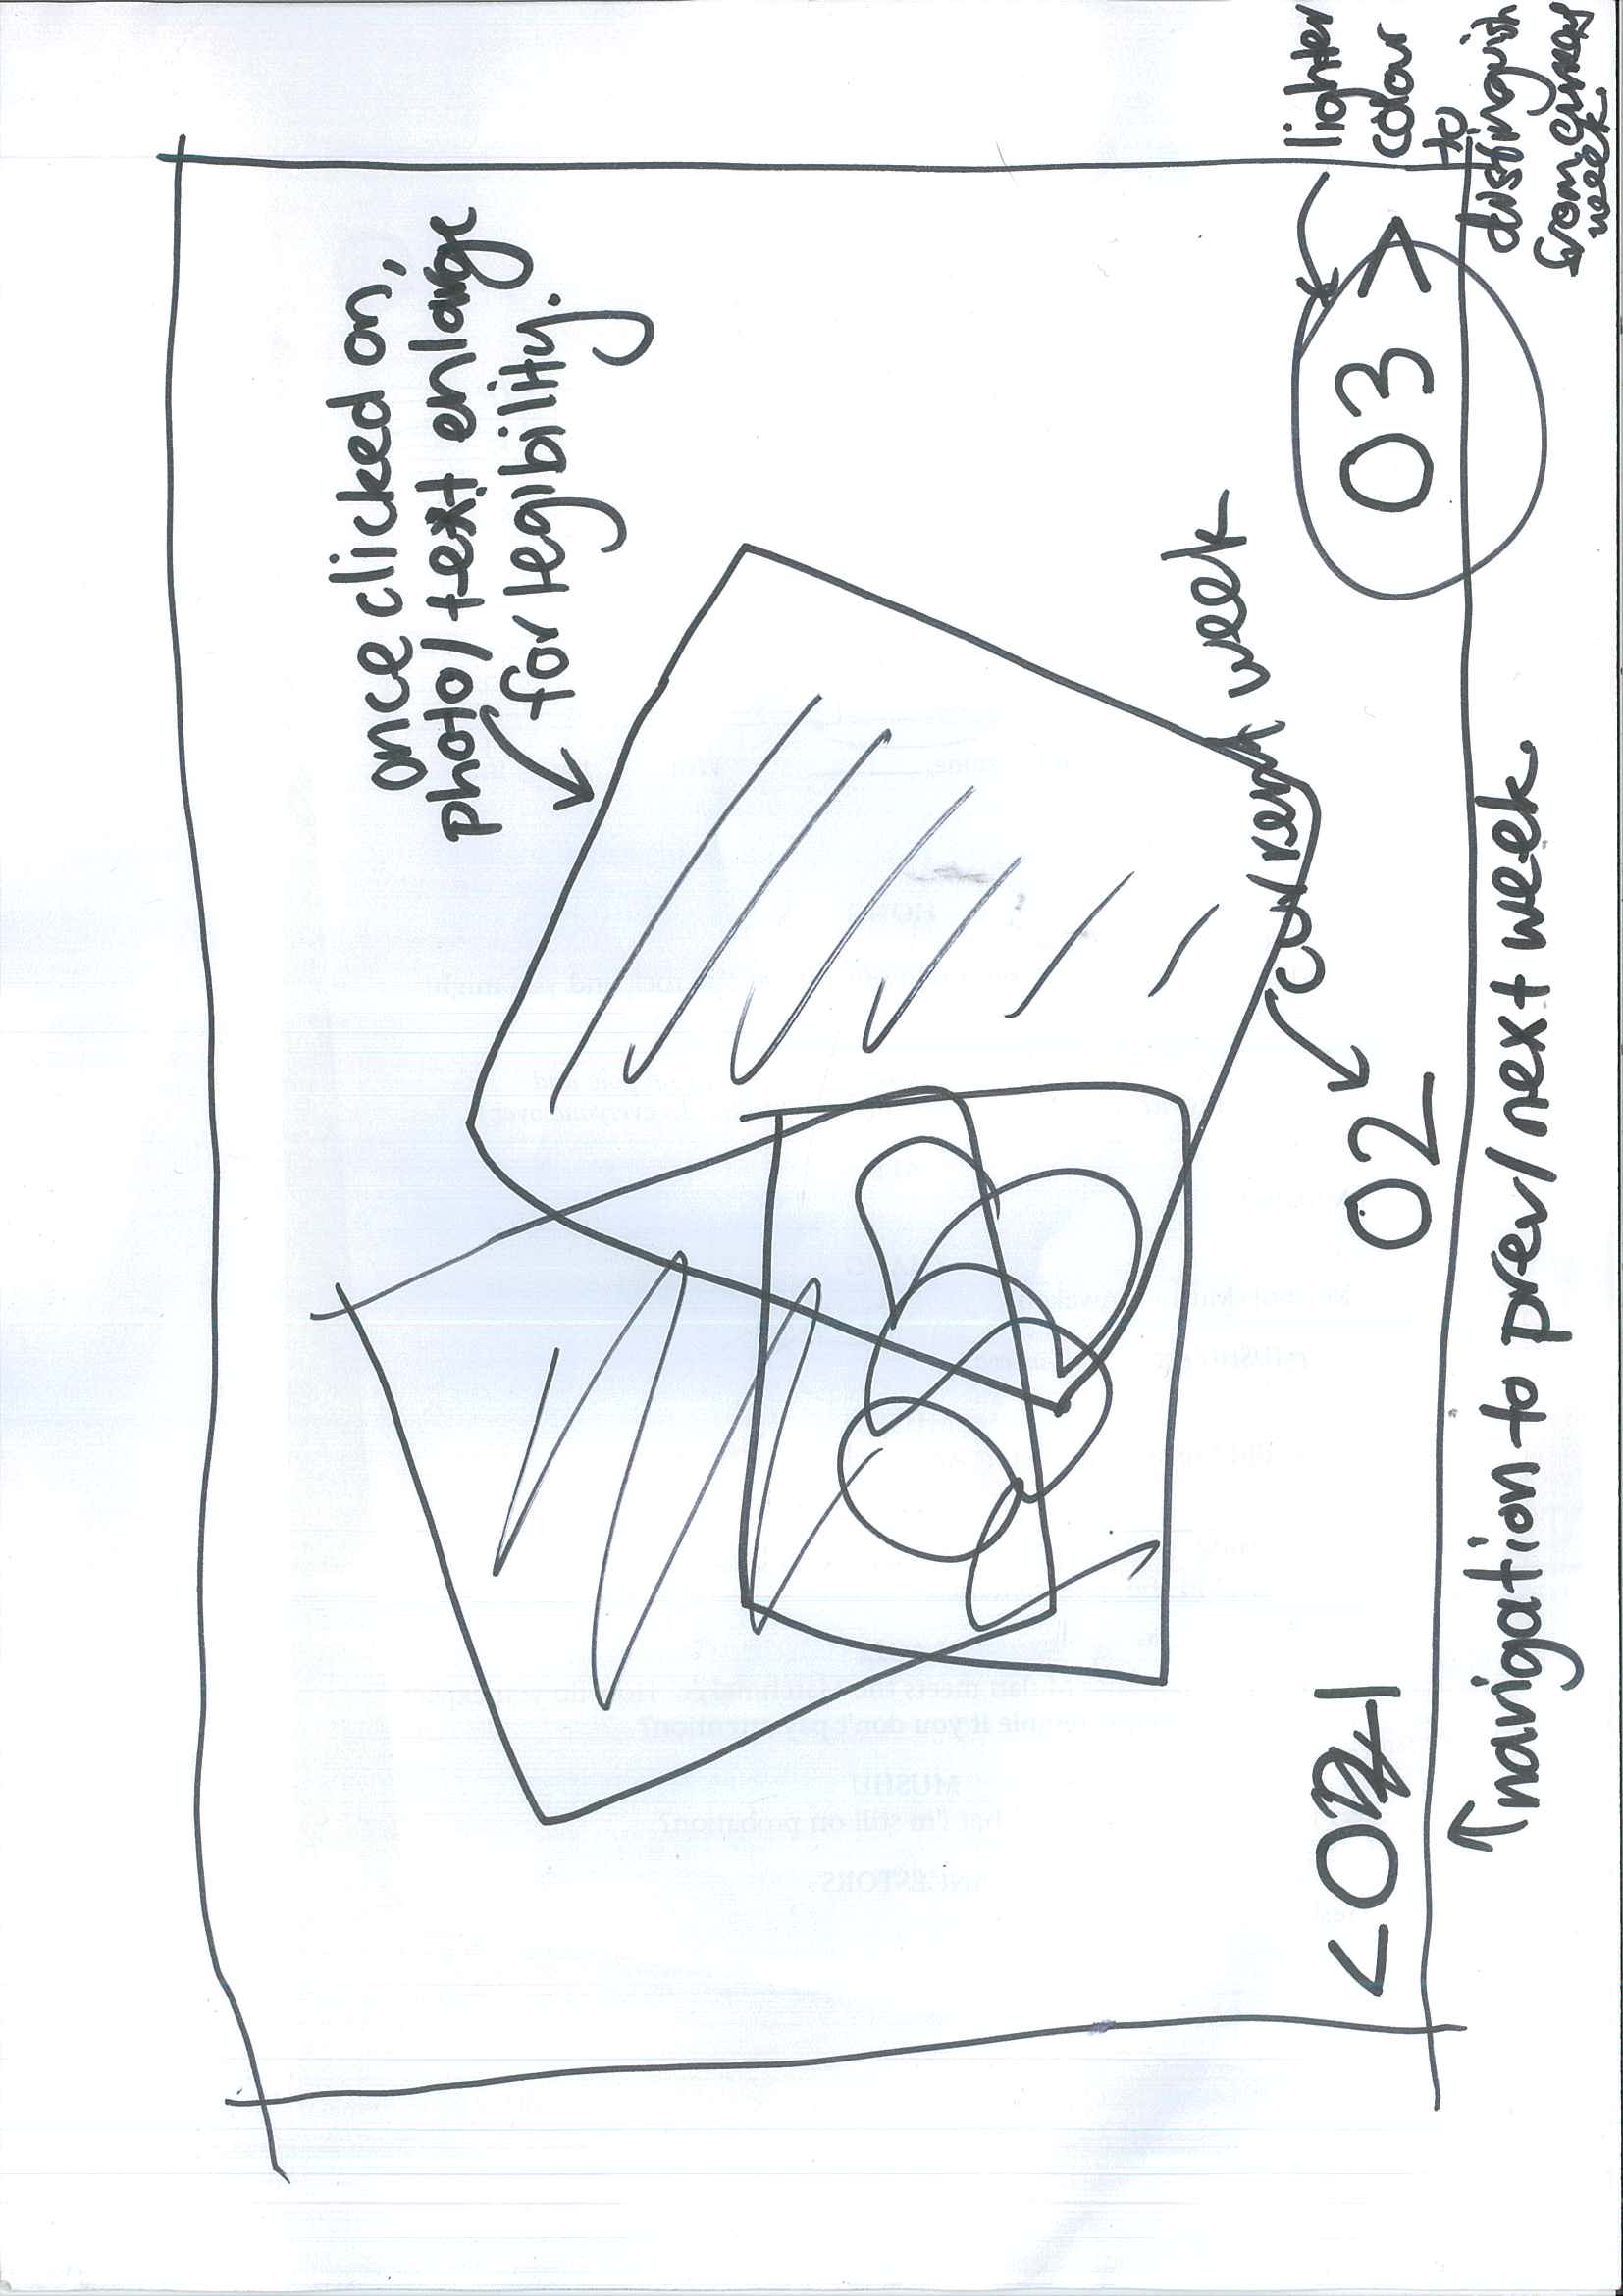 once clicked on,
photo/text enlarge
for legibility.
current week
<01
02
03 >
lighter
colour
to
distinguish
from current
week.
↑navigation to prev/next week.